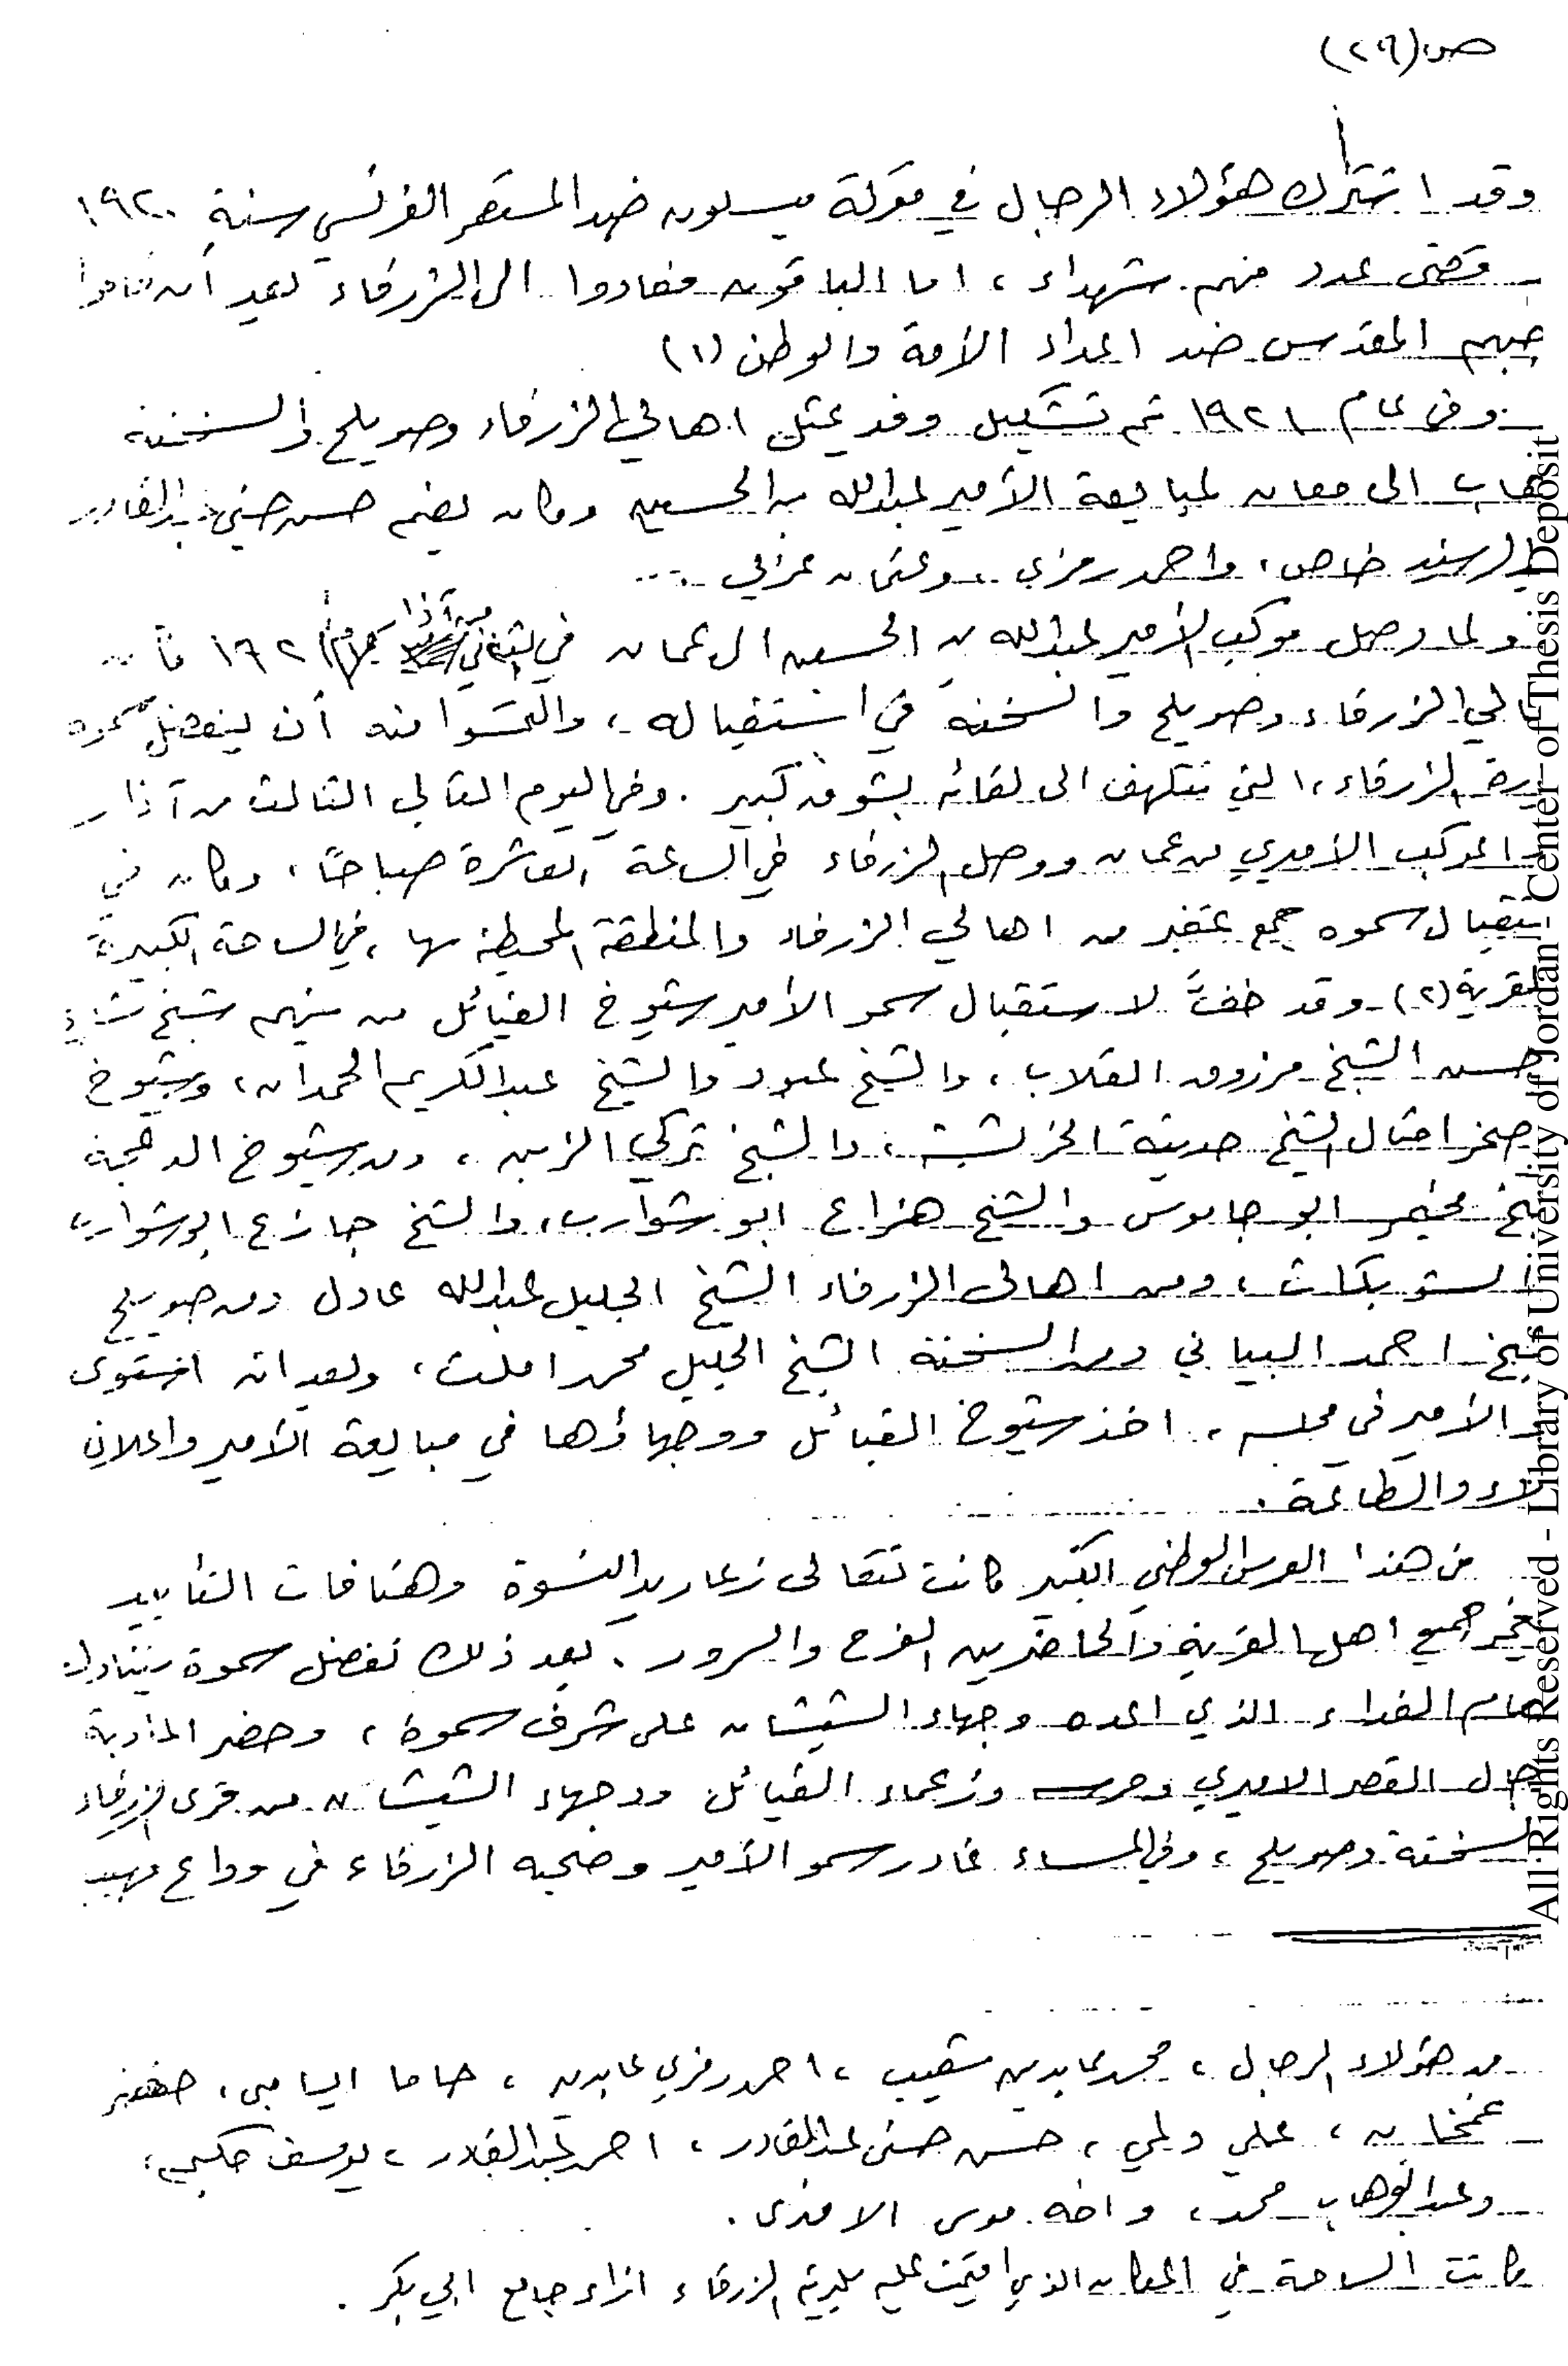 ص (٢٩)
وقد اشترك هؤلاء الرجال في معركة ميسلون ضد المستعمر الفرنسي سنة ١٩٢٠
قضى عدد منهم شهداء ، اما الباقون فعادوا الى الزرقاء بعد أن قاموا
المقدس ضد اعداء الأمة والوطن (١)
وفي عام ١٩٢١ تم تشكيل وفد يمثل اهالي الزرقاء وصويلح والسخنة
الى معان لمبايعة الأمير عبدالله بن الحسين وكان يضم حسن حسني عبدالقادر
خاص ، واحمد رمزي ، وعثمان غزالي ...
ولما وصل موكب الأمير عبدالله بن الحسين الى عمان في الثاني من آذار ١٩٢
الزرقاء وصويلح والسخنة في استقباله ، والتمسوا منه أن يتفضل سموه
الزرقاء ، التي تتلهف الى لقائه بشوق كبير . وفي اليوم التالي الثالث من آذار
الموكب الاميري من عمان ووصل الزرقاء في الساعة العاشرة صباحاً ، وكان في
سموه جمع غفير من اهالي الزرقاء والمنطقة المحيطة بها ، في الساحة الكبيرة
للقرية (٢) وقد خفَّ لاستقبال سمو الأمير شيوخ القبائل من بينهم شيخ مشايخ
حسن الشيخ مرزوق القلاب ، والشيخ عبود والشيخ عبدالكريم الحمدان ، وشيوخ
صخر امثال الشيخ حديثة الخريشة ، والشيخ تركي الزبن ، ومن شيوخ الدعجة
ابو جاموس والشيخ هزاع ابو شوارب ، والشيخ جازع ابو شوارب
، ومن اهالي الزرقاء الشيخ الجليل عبدالله عادل ومن صويلح
احمد البياني ومن السخنة الشيخ الجليل محمد املت ، وبعد ان استوى
الأمير في مجلسه ، اخذ شيوخ القبائل ووجهاؤها في مبايعة الأمير واعلان
والطاعة .
في هذا العرس الوطني الكبير كانت تتعالى زغاريد النسوة وهتافات التأييد
جميع اهل القرية والحاضرين الفرح والسرور . بعد ذلك تفضل سموه بتناول
الغداء الذي اعده وجهاء الشيشان على شرف سموه ، وحضر المأدبة
القصر الاميري وحرسه وزعماء القبائل ووجهاء الشيشان من قرى الزرقاء
السخنة وصويلح ، وفي المساء غادر سمو الأمير وصحبه الزرقاء في وداع مهيب
من هؤلاء الرجال ، محمد عابدين شعيب ، احمد رمزي عابدين ،
علي ولي ، حسن حسني عبدالقادر ، احمد عبدالقادر ، يوسف حكيم ،
وعبدالوهاب محمد ، موسى الافندي .
كانت الساحة في المكان الذي اقيمت عليه بلدية الزرقاء ازاء جامع ابي بكر .
All Rights Reserved - Library of University of Jordan - Center of Thesis Deposit